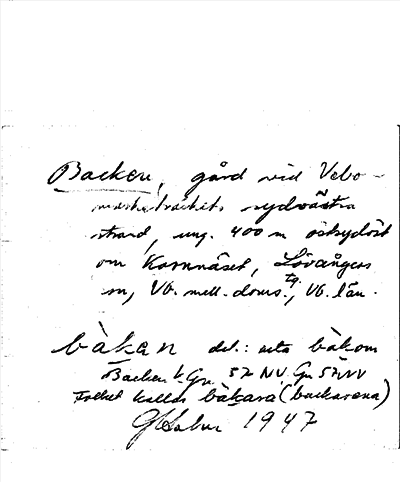 Backen, gård vid Vebo-
marksträskets sydvästra
strand, ung. 400 m ostsydöst
om Kornnäset, Lövångers
sn, Vb. mell. doms. tg., Vb. län.
bàkan dat.: uta bàkom
Backen k. Gn 52 NV. Gn 52NV
Folket kallas bàkara (backarena)
1947